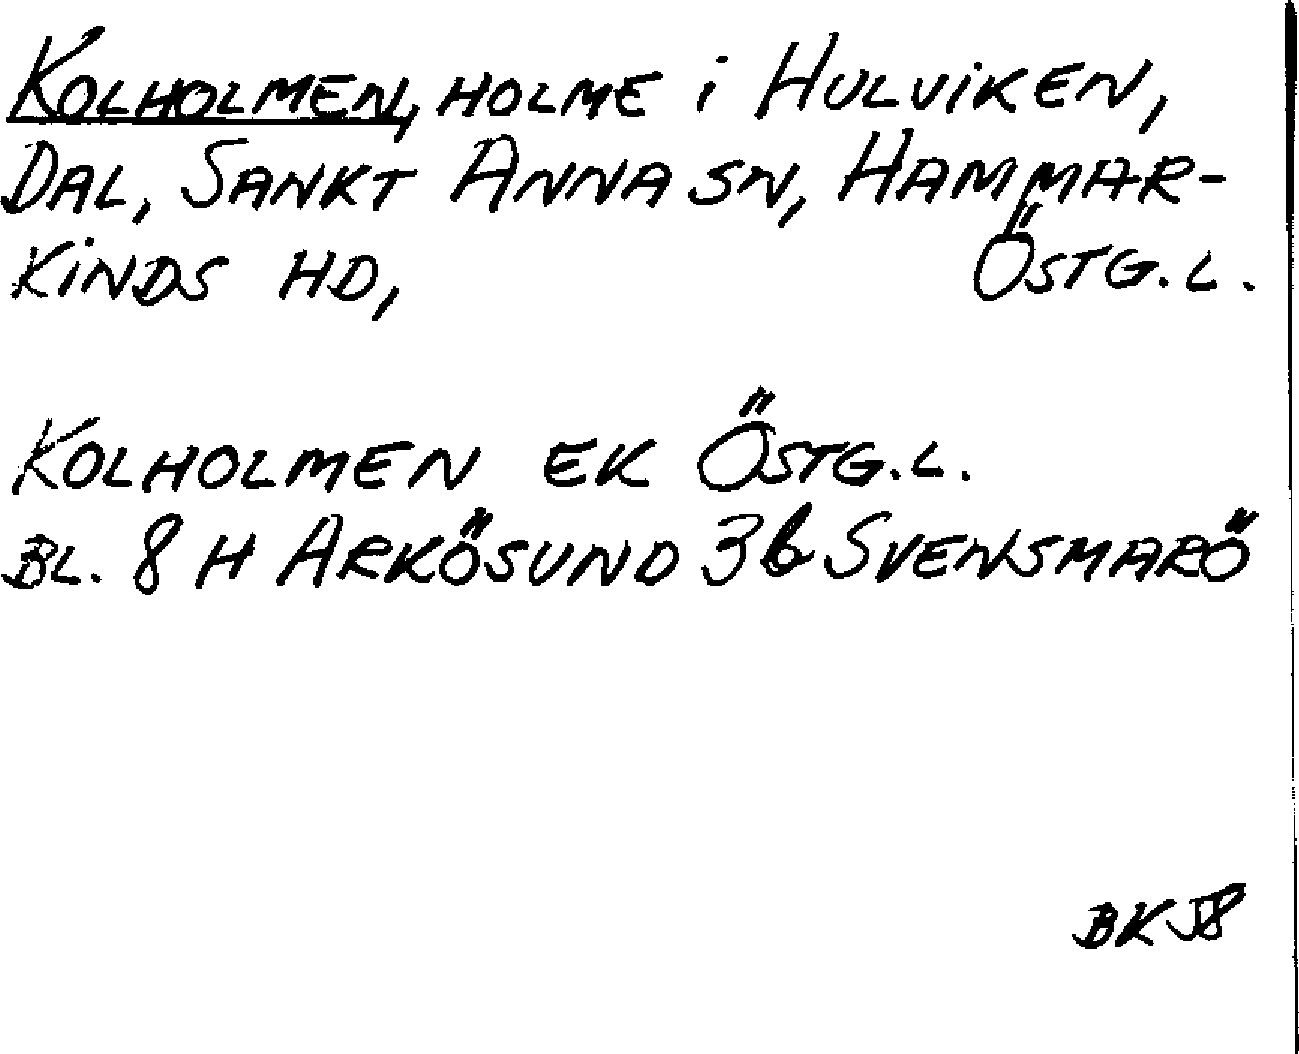 KOLHOLMEN, HOLME i HULVIKEN,
DAL, SANKT ANNA SN, HAMMAR-
KINDS HD, ÖSTG.L.
KOLHOLMEN EK ÖSTG.L.
BL. 8 H ARKÖSUND 3b SVENSMARÖ
BK 58